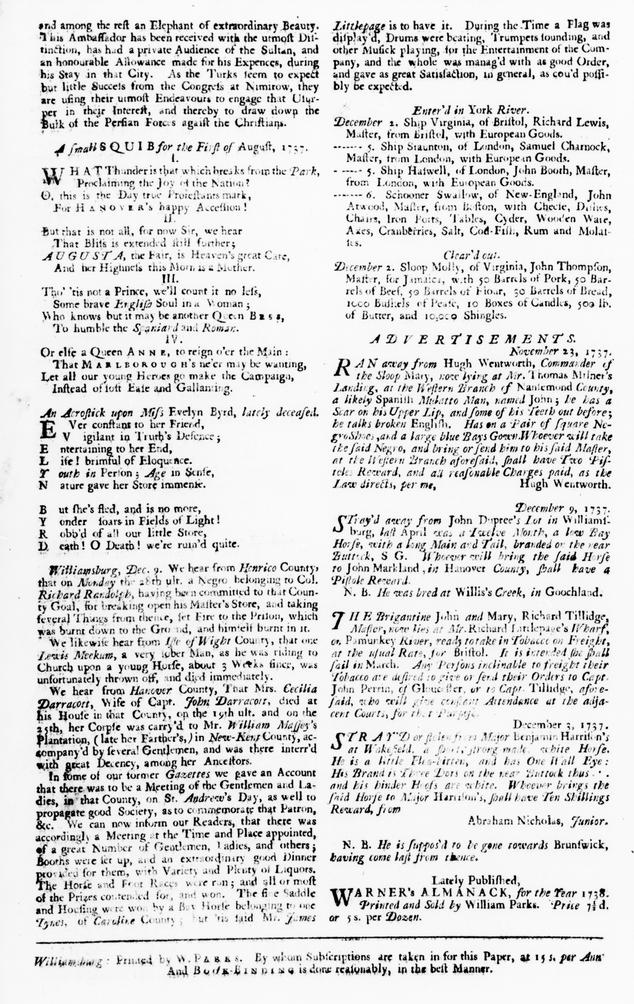 and among the rest an Elephant of extraordinary Beauty.
This Ambassador has been received with the utmost Dis-
tinction, has had a private Audience of the Sultan, and
an honourable Allowance made for his Expences, during
his Stay in that City. As the Turks seem to expect
but little Success from the Congress at Nimirow, they
are using their utmost Endeavours to engage that Usur-
per in their Interest, and thereby to draw down the
Bulk of the Persian Forces against the Christians.
A small SQUIB for the First of August, 1737.
I.
WHAT Thunder is that which breaks from the Park,
Proclaiming the Joy of the Nation?
O, this is the Day true Protestants mark,
For HANOVER's happy Accession!
II.
But that is not all, for now Sir, we hear
That Bliss is extended still further;
AUGUSTA, the Fair, is Heaven's great Care,
And her Highness this Morn is a Mother.
III.
Tho' 'tis not a Prince, we'll count it no less,
Some brave English Soul in a Woman;
Who knows but it may be another Queen BESS,
To humble the Spaniard and Roman.
IV.
Or else a Queen ANNE, to reign o'er the Main:
That MARLBOROUGH's ne'er may be wanting,
Let all our young Heroes go make the Campaign,
Instead of soft Ease and Gallanting.
An Acrostick upon Miss Evelyn Byrd, lately deceased.
E Ver constant to her Friend,
V igilant in Truth's Defence;
E ntertaining to her End,
L ife! brimful of Eloquence.
Y outh in Person; Age in Sense,
N ature gave her Store immense.
B ut she's fled, and is no more,
Y onder soars in Fields of Light!
R obb'd of all our little Store,
D eath! O Death! we're ruin'd quite.
Williamsburg, Dec. 9. We hear from Henrico County;
that on Monday the 28th ult. a Negro belonging to Col.
Richard Randolph, having been committed to that Coun-
ty Goal, for breaking open his Master's Store, and taking
several Things from thence, set Fire to the Prison, which
was burnt down to the Ground, and himself burnt in it.
We likewise hear from Isle of Wight County, that one
Lewis Meekum, a very sober Man, as he was riding to
Church upon a young Horse, about 3 Weeks since, was
unfortunately thrown off, and died immediately.
We hear from Hanover County, That Mrs. Cecilia
Darracott, Wife of Capt. John Darracott, died at
his House in that County, on the 19th ult. and on the
25th, her Corpse was carry'd to Mr. William Massey's
Plantation, (late her Father's,) in New-Kent County, ac-
company'd by several Gentlemen, and was there interr'd
with great Decency, among her Ancestors.
In some of our former Gazettes we gave an Account
that there was to be a Meeting of the Gentlemen and La-
dies, in that County, on St. Andrew's Day, as well to
propagate good Society, as to commemorate that Patron,
&c. We can now inform our Readers, that there was
accordingly a Meeting at the Time and Place appointed,
of a great Number of Gentlemen, Ladies, and others;
Booths were set up, and an extraordinary good Dinner
provided for them, with Variety and Plenty of Liquors.
The Horse and Foot Races were run; and all or most
of the Prizes contended for, and won. The fine Saddle
and Housing were won by a Bay Horse belonging to one
Tynes, of Caroline County; but 'tis said Mr. James
Littlepage is to have it. During the Time a Flag was
display'd, Drums were beating, Trumpets sounding, and
other Musick playing, for the Entertainment of the Com-
pany, and the whole was manag'd with as good Order,
and gave as great Satisfaction, in general, as cou'd possi-
bly be expected.
Enter'd in York River.
December 2. Ship Virginia, of Bristol, Richard Lewis,
Master, from Bristol, with European Goods.
------- 5. Ship Staunton, of London, Samuel Charnock,
Master, from London, with European Goods.
------- 5. Ship Hatwell, of London, John Booth, Master,
from London, with European Goods.
------- 6. Schooner Swallow, of New-England, John
Atwood, Master, from Boston, with Cheese, Dishes,
Chairs, Iron Pots, Tables, Cyder, Wooden Ware,
Axes, Cranberries, Salt, Cod-Fish, Rum and Molas-
ses.
Clear'd out.
December 2. Sloop Molly, of Virginia, John Thompson,
Master, for Jamaica, with 50 Barrels of Pork, 50 Bar-
rels of Beef, 50 Barrels of Flour, 30 Barrels of Bread,
1000 Bushels of Pease, 10 Boxes of Candles, 500 lb.
of Butter, and 10,000 Shingles.
ADVERTISEMENTS.
November 23, 1737.
RAN away from Hugh Wentworth, Commander of
the Sloop Mary, now lying at Mr. Thomas Milner's
Landing, at the Western Branch of Nansemond County,
a likely Spanish Mulatto Man, named John; he has a
Scar on his Upper Lip, and some of his Teeth out before;
he talks broken English. Has on a Pair of square Ne-
gro Shoes, and a large blue Bays Gown. Whoever will take
the said Negro, and bring or send him to his said Master,
at the Western Branch aforesaid, shall have Two Pis-
toles Reward, and all reasonable Charges paid, as the
Law directs, per me, Hugh Wentworth.
December 9, 1737.
STray'd away from John Dupree's Lot in Williams-
burg, last April was a Twelve Month, a low Bay
Horse, with a long Main and Tail, branded on the near
Buttock, S G. Whoever will bring the said Horse
to John Markland, in Hanover County, shall have a
Pistole Reward.
N. B. He was bred at Willis's Creek, in Goochland.
THE Brigantine John and Mary, Richard Tillidge,
Master, now lies at Mr. Richard Littlepage's Wharf,
on Pamunkey River, ready to take in Tobacco on Freight,
at the usual Rate, for Bristol. It is intended she shall
sail in March. Any Persons inclinable to freight their
Tobacco are desired to give or send their Orders to Capt.
John Perrin, of Gloucester, or to Capt. Tillidge, afore-
said, who will give constant Attendance at the adja-
cent Courts, for that Purpose.
December 3, 1737.
STRAY'D or stolen from Major Benjamin Harrison's
at Wakefield, a short, strong made, white Horse.
He is a little Flea-bitten, and has One Wall Eye:
His Brand is Three Dots on the near Buttock thus . . .
and his hinder Hoofs are white. Whoever brings the
said Horse to Major Harrison's, shall have Ten Shillings
Reward, from
Abraham Nicholas, Junior.
N. B. He is suppos'd to be gone towards Brunswick,
having come last from thence.
Lately Published,
WARNER's ALMANACK, for the Year 1738.
Printed and Sold by William Parks. Price 7½d.
or 5 s. per Dozen.
Williamsburg: Printed by W. PARKS. By whom Subscriptions are taken in for this Paper, at 15 s. per Ann
And BOOK-BINDING is done reasonably, in the best Manner.